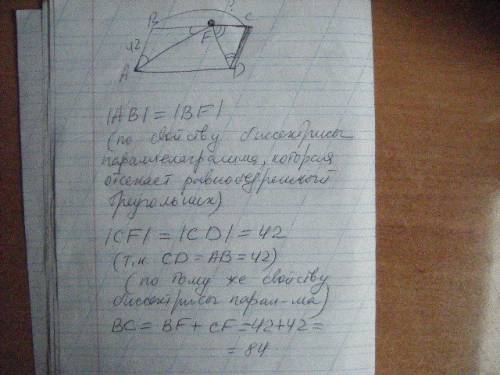 ?
B C
F
42
A D
|AB| = |BF|
(по свойству биссектрисы
параллелограмма, которая
отсекает равнобедренный
треугольник)
|CF| = |CD| = 42
(т.к. CD = AB = 42)
(по тому же свойству
биссектрисы парал-ма)
BC = BF + CF = 42 + 42 =
= 84